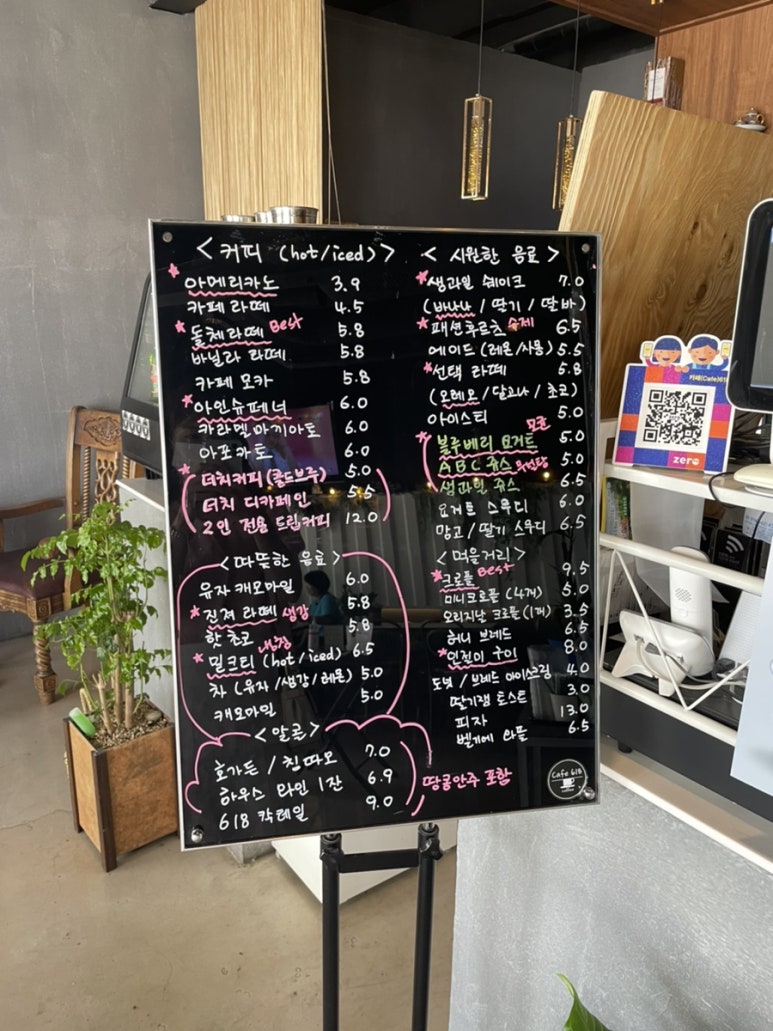 < 커피 (hot/iced) >
아메리카노 3.9
카페라떼 4.5
돌체라떼 Best 5.8
바닐라 라떼 5.8
카페 모카 5.8
아인슈페너 6.0
카라멜마끼아또 6.0
아포카토 6.0
더치커피 (콜드브루) 5.0
더치 디카페인 5.5
2인 전용 드립커피 12.0
< 따뜻한 음료 >
유자 캐모마일 6.0
진저 라떼 생강 5.8
핫초코 5.8
밀크티 (hot/iced) 6.5
차 (유자/생강/레몬) 5.0
캐모마일 5.0
< 알콜 >
호가든 / 칭따오 7.0
하우스 와인 1잔 6.9
618 칵테일 9.0
땅콩안주 포함
< 시원한 음료 >
생과일 쉐이크 7.0
(바나나 / 딸기 / 딸바)
패션후르츠 수제 6.5
에이드 (레몬/자몽) 5.5
선택 라떼 5.8
(오레오 / 달고나 / 초코)
아이스티 5.0
블루베리 요거트 5.0
ABC 쥬스 5.0
생과일 쥬스 6.5
요거트 스무디 6.0
망고 / 딸기 스무디 6.5
< 먹을거리 >
크로플 Best 9.5
미니크로플 (4개) 5.0
오리지날 크로플 (1개) 3.5
허니 브레드 6.5
인절미 구이 8.0
도넛 / 브레드 아이스크림 4.0
딸기잼 토스트 3.0
피자 13.0
벨기에 와플 6.5
Cafe 618
카페(Cafe)61
zero